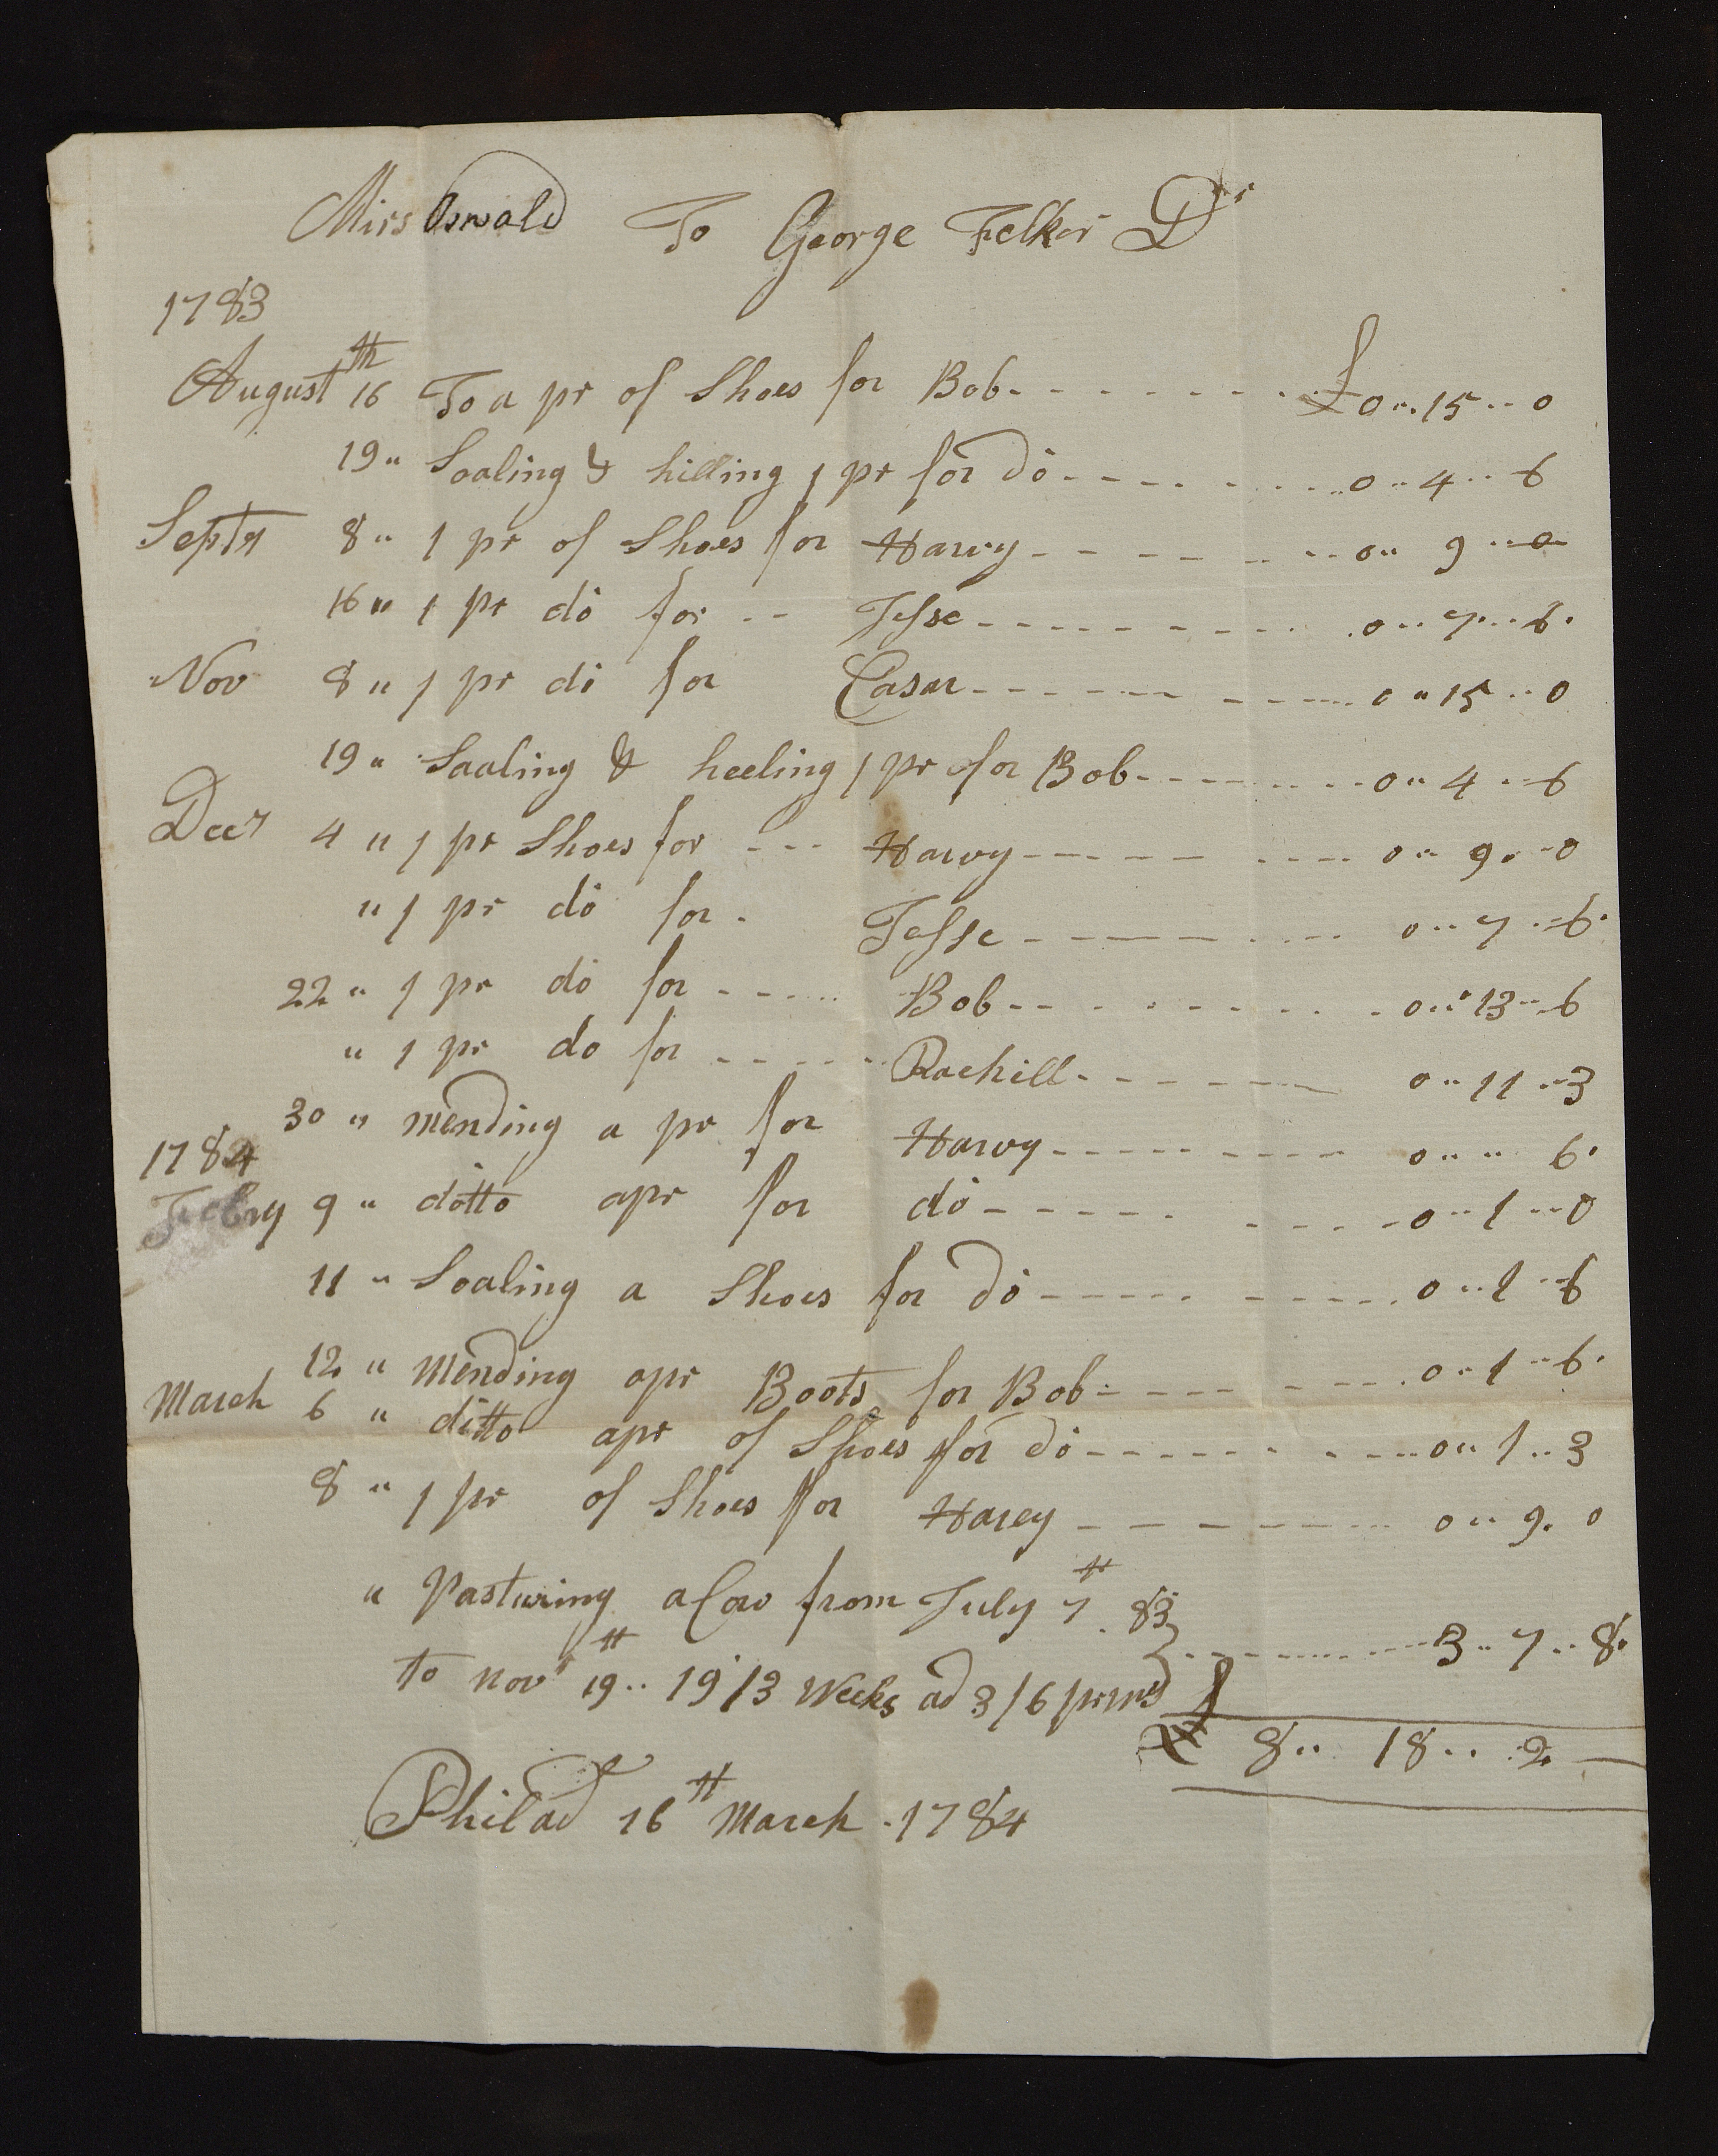 Mirs Oswald To George Felker Dr
1783
August 16th To a pr of Shoes for Bob £ 0 15 0
19 " Soaling & hilling 1 pr for do 0 4 6
Septr 8 " 1 pr of Shoes for Harvy 0 9 0
16 " 1 pr do for Jesse 0 7 6
Nov 8 " 1 pr do for Casar 0 15 0
19 " Soaling & heeling 1 pr for Bob 0 4 6
Decr 4 " 1 pr Shoes for Harvy 0 9 0
" 1 pr do for Jesse 0 7 6
22 " 1 pr do for Bob 0 13 6
" 1 pr do for Rachill 0 11 3
30 " mending a pr for Harvy 0 " 6
1784
Febry 9 " ditto apr for do 0 1 0
11 " Soaling a Shoes for do 0 1 6
12 " Mending apr Boots for Bob 0 1 6
March 6 " ditto apr of Shoes for do 0 1 3
8 " 1 pr of Shoes for Harvy 0 9 0
" Pasturing a Cow from July 7th 83
to novr 19th 19/3 Weeks ad 3/6 pr 3 7 8
£ 8 18 2
Philad 16th March 1784